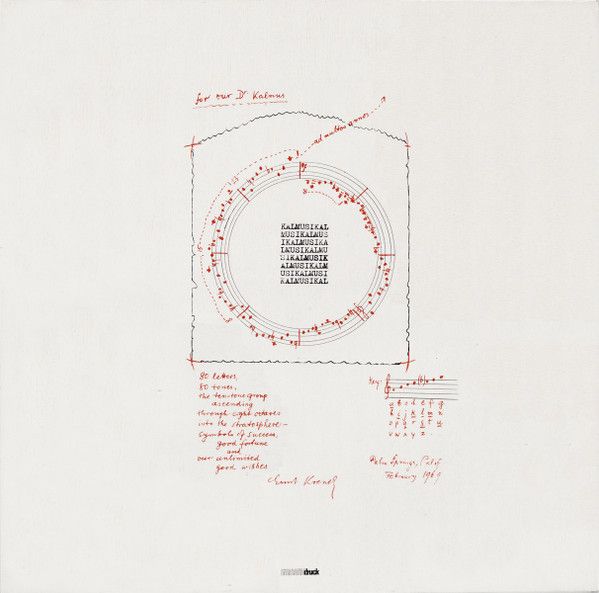 for our Dr Kalmus
ad multos annos
KALMUSIKAL
MUSIKALMUS
IKALMUSIKA
LMUSIKALMU
SIKALMUSIK
ALMUSIKALM
USIKALMUSI
KALMUSIKAL
80 letters,
80 tones,
the ten-tone group
ascending
through eight octaves
into the stratosphere –
symbols of success,
good fortune
and
our unlimited
good wishes
Ernst Krenek
Key:
a b c d e f g
h i j k l m n
o p q r s t u
v w x y z
Palm Springs, Calif
February 1969
druck